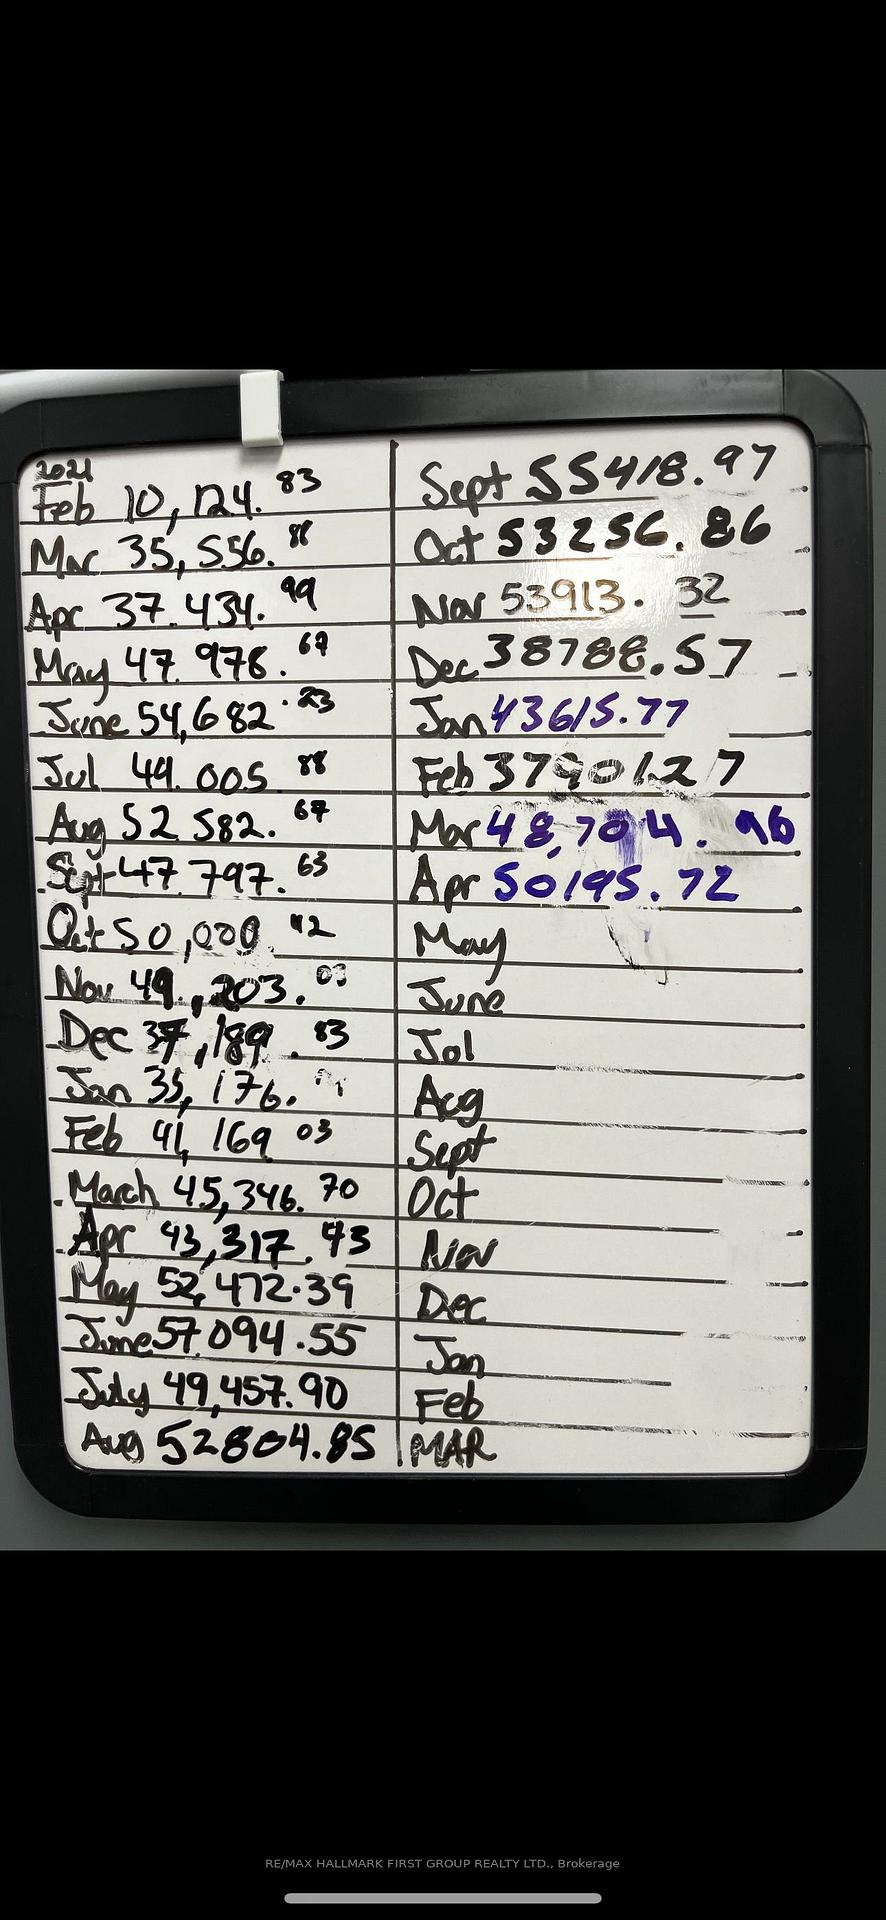 2021
Feb 10,124.83
Mar 35,556.88
Apr 37.434.99
May 47.978.67
June 54,682.23
Jul 49.005 88
Aug 52 582.67
Sept 47.797.63
Oct 50,000 42
Nov 49,203.03
Dec 37,189.83
Jan 35,176.
Feb 41,169 03
March 45,346.70
Apr 43,317.43
May 52,472.39
June 57 094.55
July 49,457.90
Aug 52804.85
Sept 55418.97
Oct 53256.86
Nov 53913.32
Dec 38788.57
Jan 43615.77
Feb 37901.27
Mar 48,704.96
Apr 50195.72
May
June
Jul
Aug
Sept
Oct
Nov
Dec
Jan
Feb
MAR
RE/MAX HALLMARK FIRST GROUP REALTY LTD., Brokerage